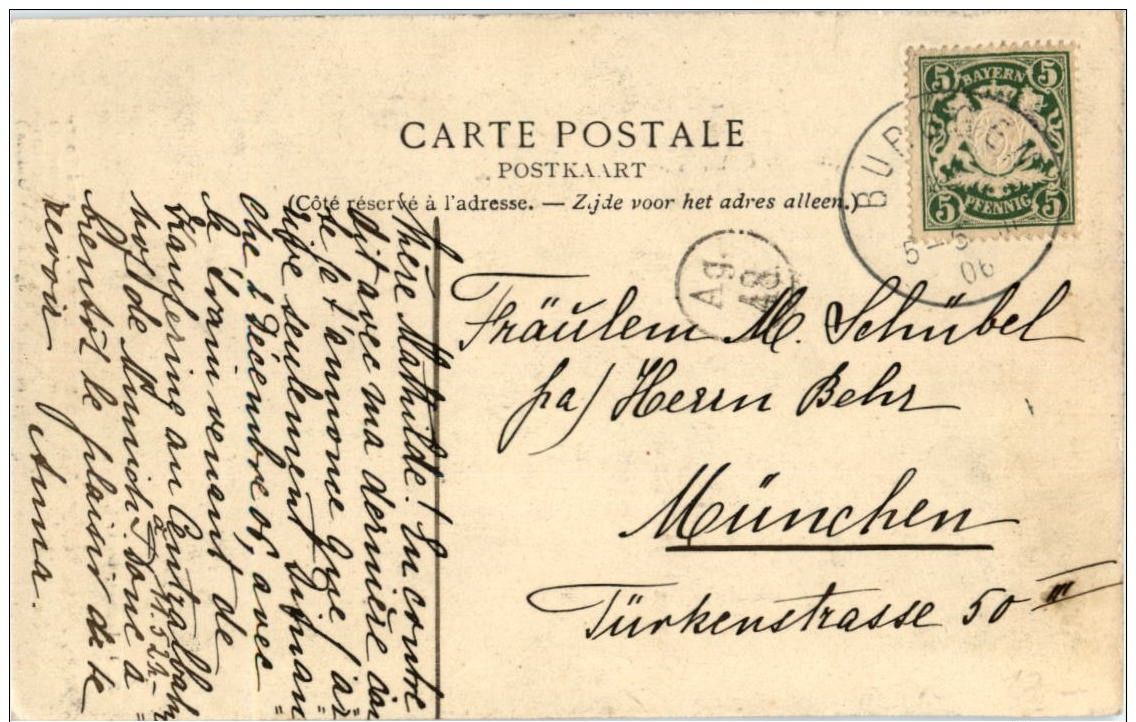 CARTE POSTALE
POSTKAART
(Côté réservé à l'adresse. — Zijde voor het adres alleen.)
5 BAYERN 5
5 PFENNIG 5
BUR
5 06
Ag.
Ag.
Fräulein M. Schübel
pa/ Herrn Behr
München
Türkenstrasse 50 III
chère Mathilde! En contre
dit avec ma dernière
je t'annonce que j'ar
rive seulement Diman
che, 2 Décembre, avec
le train venant de
au Centralbahn
hof de Munich. Donc à
bientôt le plaisir de te
revoir
Anna.